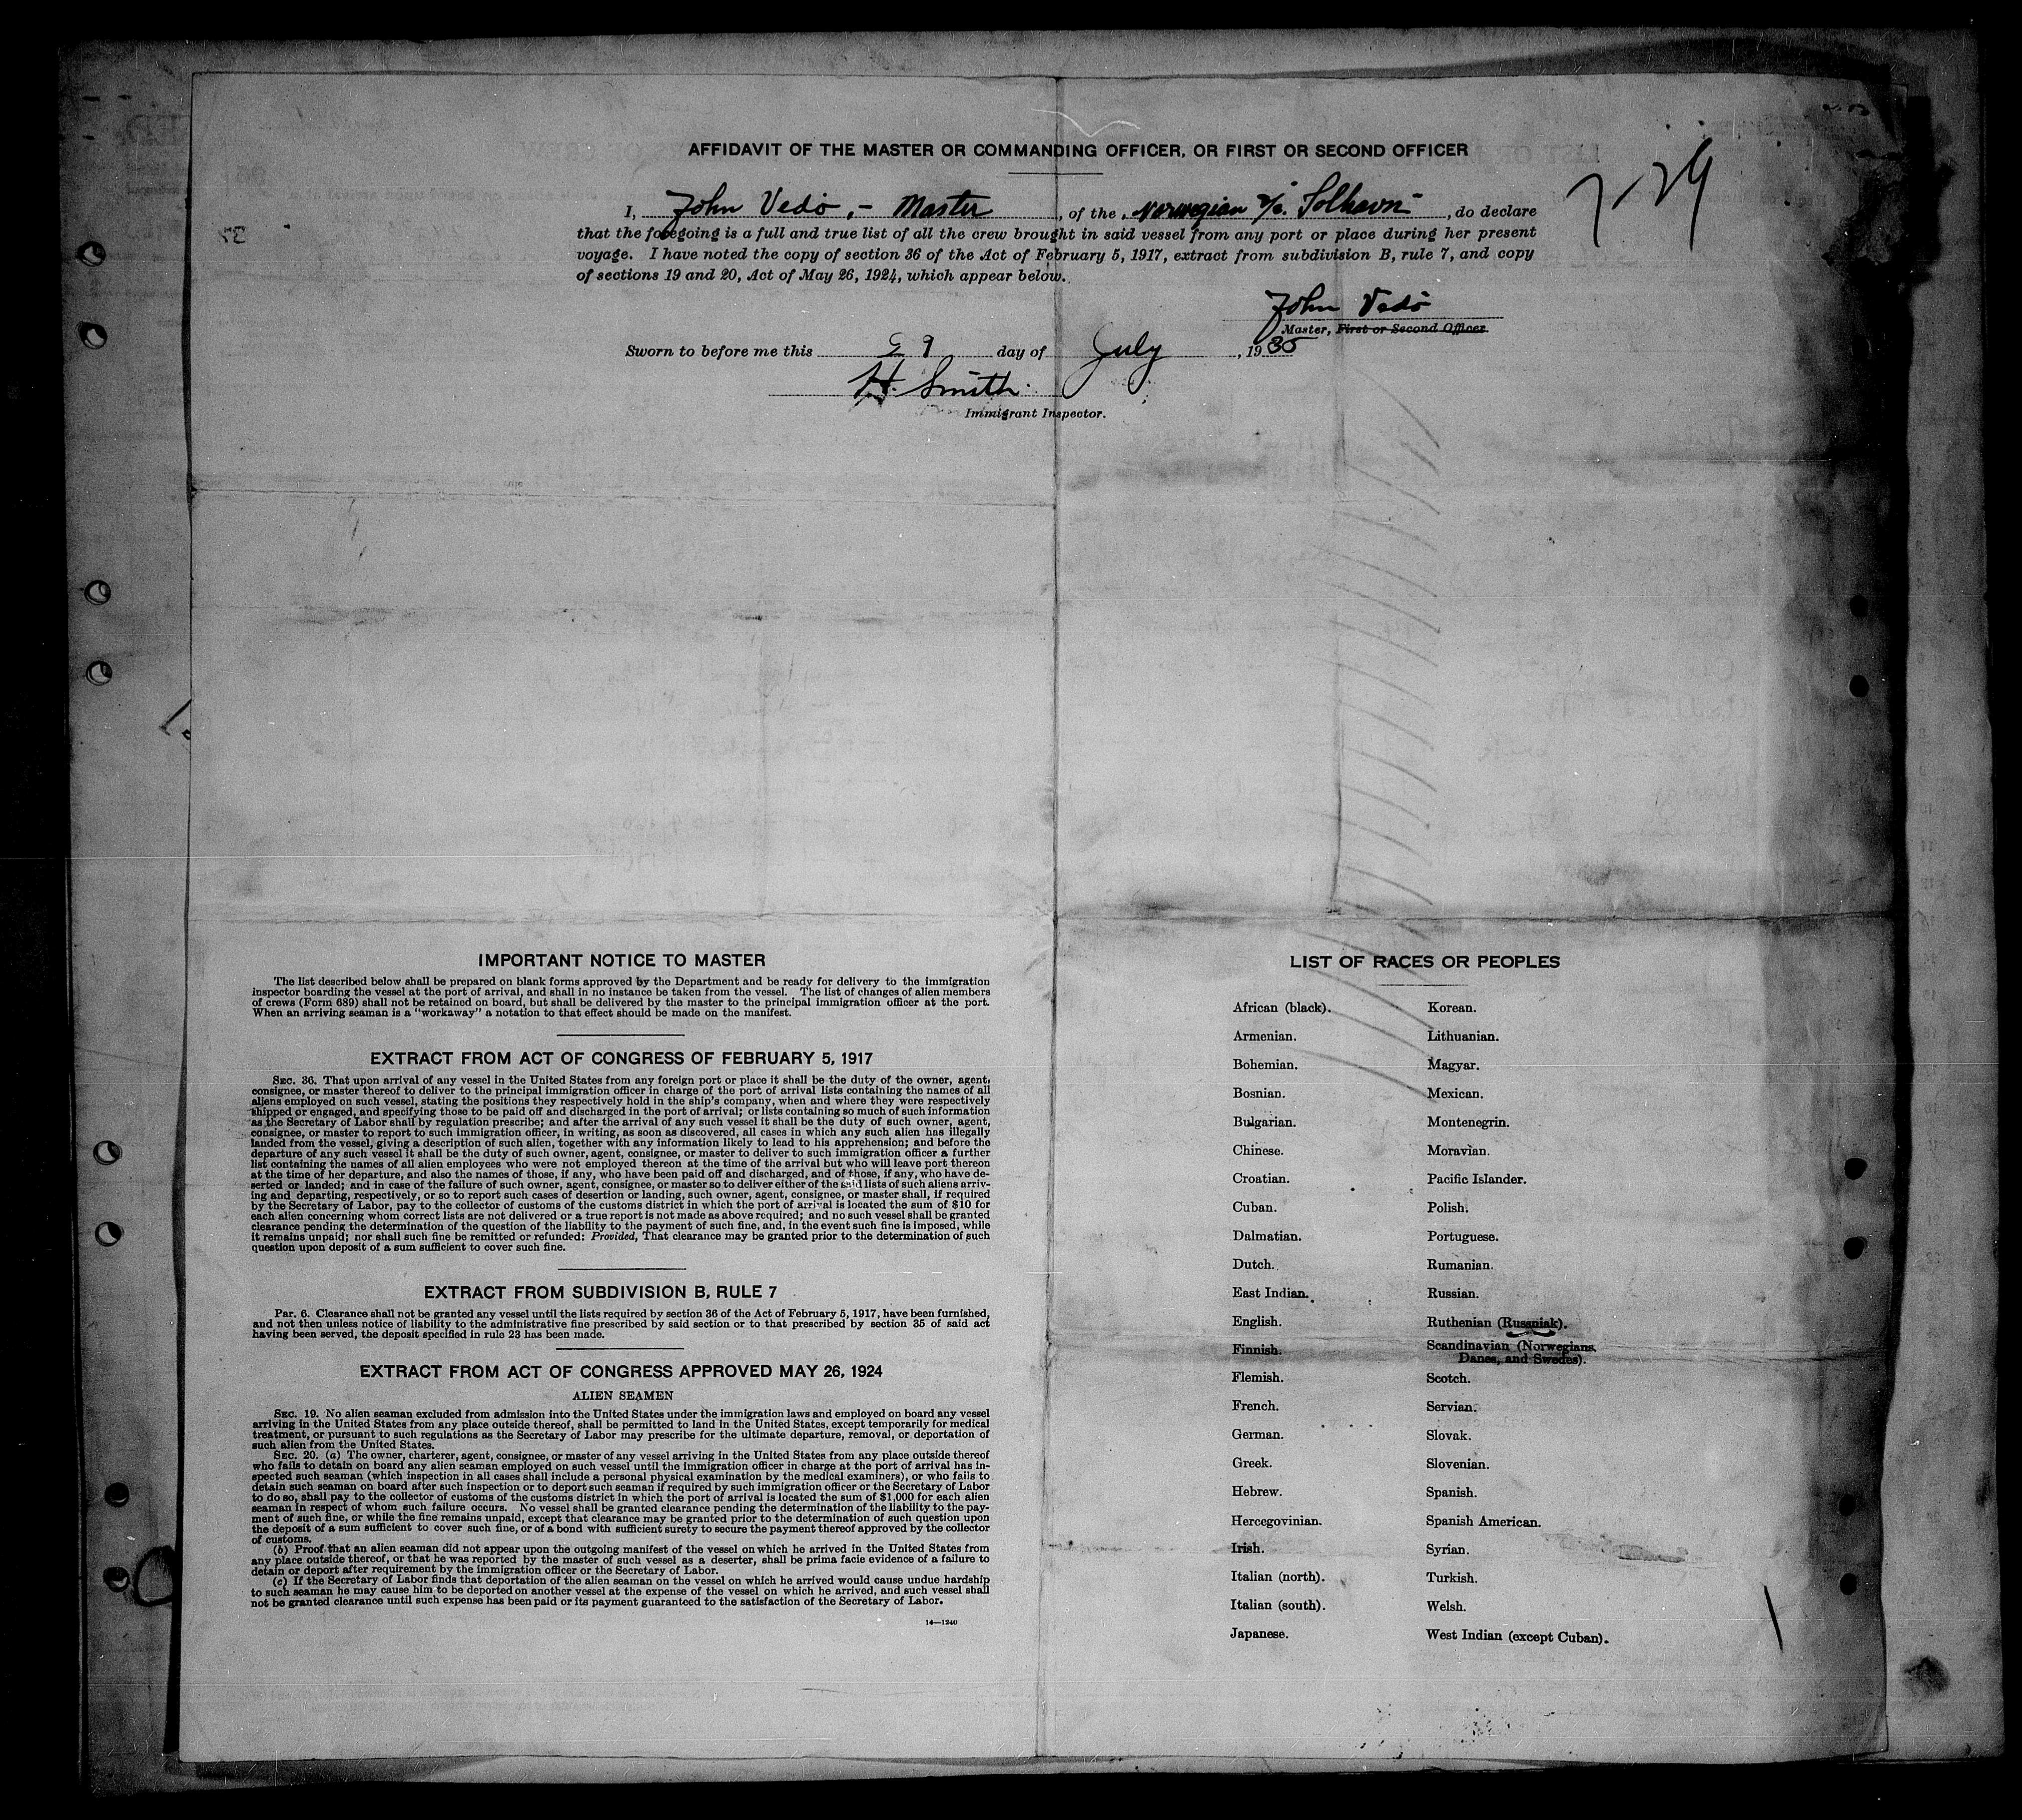 AFFIDAVIT OF THE MASTER OR COMMANDING OFFICER, OR FIRST OR SECOND OFFICER
7-29
I, John Vedö,- Master, of the Norwegian s/s. Solhavn, do declare
that the foregoing is a full and true list of all the crew brought in said vessel from any port or place during her present
voyage. I have noted the copy of section 36 of the Act of February 5, 1917, extract from subdivision B, rule 7, and copy
of sections 19 and 20, Act of May 26, 1924, which appear below.
John Vedö
Master, First or Second Officer
Sworn to before me this 29 day of July, 1935
H. Smith
Immigrant Inspector.
IMPORTANT NOTICE TO MASTER
The list described below shall be prepared on blank forms approved by the Department and be ready for delivery to the immigration
inspector boarding the vessel at the port of arrival, and shall in no instance be taken from the vessel. The list of changes of alien members
of crews (Form 689) shall not be retained on board, but shall be delivered by the master to the principal immigration officer at the port.
When an arriving seaman is a "workaway" a notation to that effect should be made on the manifest.
EXTRACT FROM ACT OF CONGRESS OF FEBRUARY 5, 1917
SEC. 36. That upon arrival of any vessel in the United States from any foreign port or place it shall be the duty of the owner, agent,
consignee, or master thereof to deliver to the principal immigration officer in charge of the port of arrival lists containing the names of all
aliens employed on such vessel, stating the positions they respectively hold in the ship's company, when and where they were respectively
shipped or engaged, and specifying those to be paid off and discharged in the port of arrival; or lists containing so much of such information
as the Secretary of Labor shall by regulation prescribe; and after the arrival of any such vessel it shall be the duty of such owner, agent,
consignee, or master to report to such immigration officer, in writing, as soon as discovered, all cases in which any such alien has illegally
landed from the vessel, giving a description of such alien, together with any information likely to lead to his apprehension; and before the
departure of any such vessel it shall be the duty of such owner, agent, consignee, or master to deliver to such immigration officer a further
list containing the names of all alien employees who were not employed thereon at the time of the arrival but who will leave port thereon
at the time of her departure, and also the names of those, if any, who have been paid off and discharged, and of those, if any, who have de-
serted or landed; and in case of the failure of such owner, agent, consignee, or master so to deliver either of the said lists of such aliens arriv-
ing and departing, respectively, or so to report such cases of desertion or landing, such owner, agent, consignee, or master shall, if required
by the Secretary of Labor, pay to the collector of customs of the customs district in which the port of arrival is located the sum of $10 for
each alien concerning whom correct lists are not delivered or a true report is not made as above required; and no such vessel shall be granted
clearance pending the determination of the question of the liability to the payment of such fine, and, in the event such fine is imposed, while
it remains unpaid; nor shall such fine be remitted or refunded: Provided, That clearance may be granted prior to the determination of such
question upon deposit of a sum sufficient to cover such fine.
EXTRACT FROM SUBDIVISION B, RULE 7
Par. 6. Clearance shall not be granted any vessel until the lists required by section 36 of the Act of February 5, 1917, have been furnished,
and not then unless notice of liability to the administrative fine prescribed by said section or to that prescribed by section 35 of said act
having been served, the deposit specified in rule 23 has been made.
EXTRACT FROM ACT OF CONGRESS APPROVED MAY 26, 1924
ALIEN SEAMEN
SEC. 19. No alien seaman excluded from admission into the United States under the immigration laws and employed on board any vessel
arriving in the United States from any place outside thereof, shall be permitted to land in the United States, except temporarily for medical
treatment, or pursuant to such regulations as the Secretary of Labor may prescribe for the ultimate departure, removal, or deportation of
such alien from the United States.
SEC. 20. (a) The owner, charterer, agent, consignee, or master of any vessel arriving in the United States from any place outside thereof
who fails to detain on board any alien seaman employed on such vessel until the immigration officer in charge at the port of arrival has in-
spected such seaman (which inspection in all cases shall include a personal physical examination by the medical examiners), or who fails to
detain such seaman on board after such inspection or to deport such seaman if required by such immigration officer or the Secretary of Labor
to do so, shall pay to the collector of customs of the customs district in which the port of arrival is located the sum of $1,000 for each alien
seaman in respect of whom such failure occurs. No vessel shall be granted clearance pending the determination of the liability to the pay-
ment of such fine, or while the fine remains unpaid, except that clearance may be granted prior to the determination of such question upon
the deposit of a sum sufficient to cover such fine, or of a bond with sufficient surety to secure the payment thereof approved by the collector
of customs.
(b) Proof that an alien seaman did not appear upon the outgoing manifest of the vessel on which he arrived in the United States from
any place outside thereof, or that he was reported by the master of such vessel as a deserter, shall be prima facie evidence of a failure to
detain or deport after requirement by the immigration officer or the Secretary of Labor.
(c) If the Secretary of Labor finds that deportation of the alien seaman on the vessel on which he arrived would cause undue hardship
to such seaman he may cause him to be deported on another vessel at the expense of the vessel on which he arrived, and such vessel shall
not be granted clearance until such expense has been paid or its payment guaranteed to the satisfaction of the Secretary of Labor.
14—1240
LIST OF RACES OR PEOPLES
African (black).
Armenian.
Bohemian.
Bosnian.
Bulgarian.
Chinese.
Croatian.
Cuban.
Dalmatian.
Dutch.
East Indian.
English.
Finnish.
Flemish.
French.
German.
Greek.
Hebrew.
Hercegovinian.
Irish.
Italian (north).
Italian (south).
Japanese.
Korean.
Lithuanian.
Magyar.
Mexican.
Montenegrin.
Moravian.
Pacific Islander.
Polish.
Portuguese.
Rumanian.
Russian.
Ruthenian (Russniak).
Scandinavian (Norwegians,
Danes, and Swedes).
Scotch.
Servian.
Slovak.
Slovenian.
Spanish.
Spanish American.
Syrian.
Turkish.
Welsh.
West Indian (except Cuban).